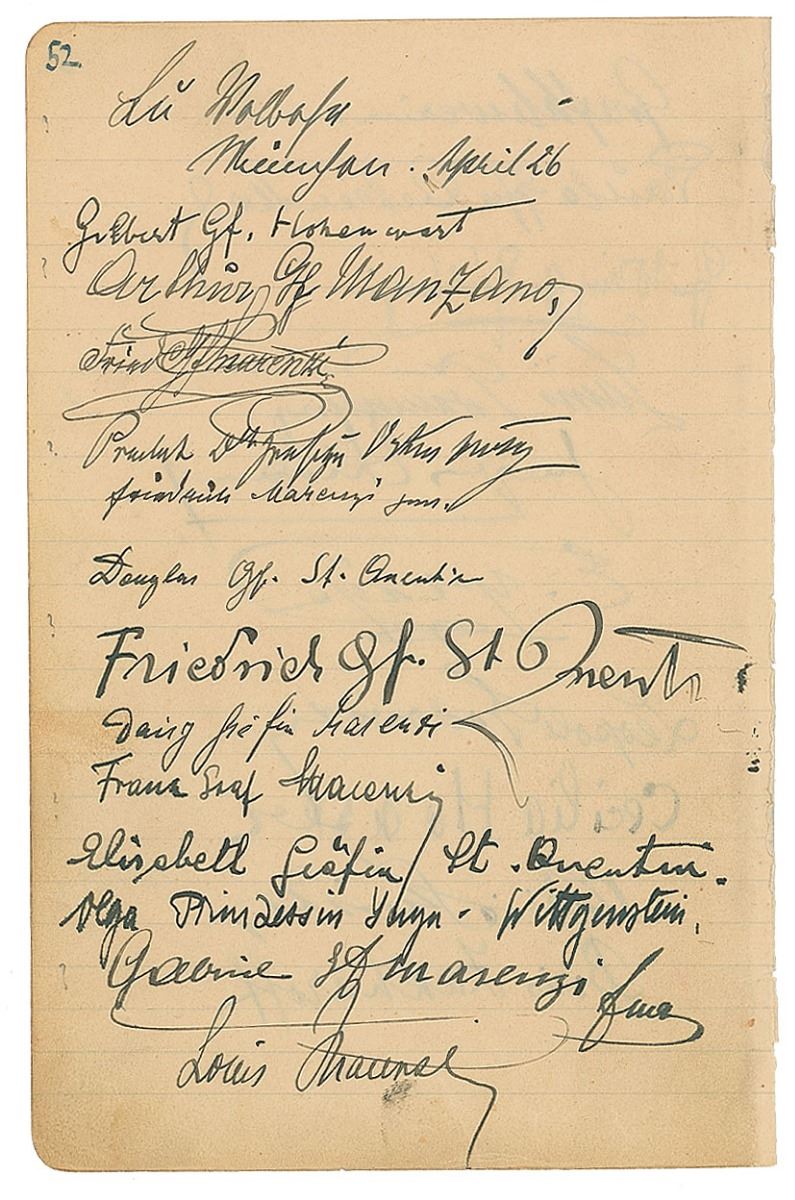 52.
Lu
München. April 26
Gilbert Gf. Hohenwart
Arthur Gf Manzano,
Fried Gf Marenzi
Friedrich Marenzi jun.
Douglas Gf. St. Quentin
Friedrich Gf. St Quentin
Daisy Gräfin Marenzi
Franz Graf Marenzi
Elisabeth Gräfin St. Quentin.
Olga Prinzessin Sayn-Wittgenstein.
Gabriel Gf Marenzi
Louis